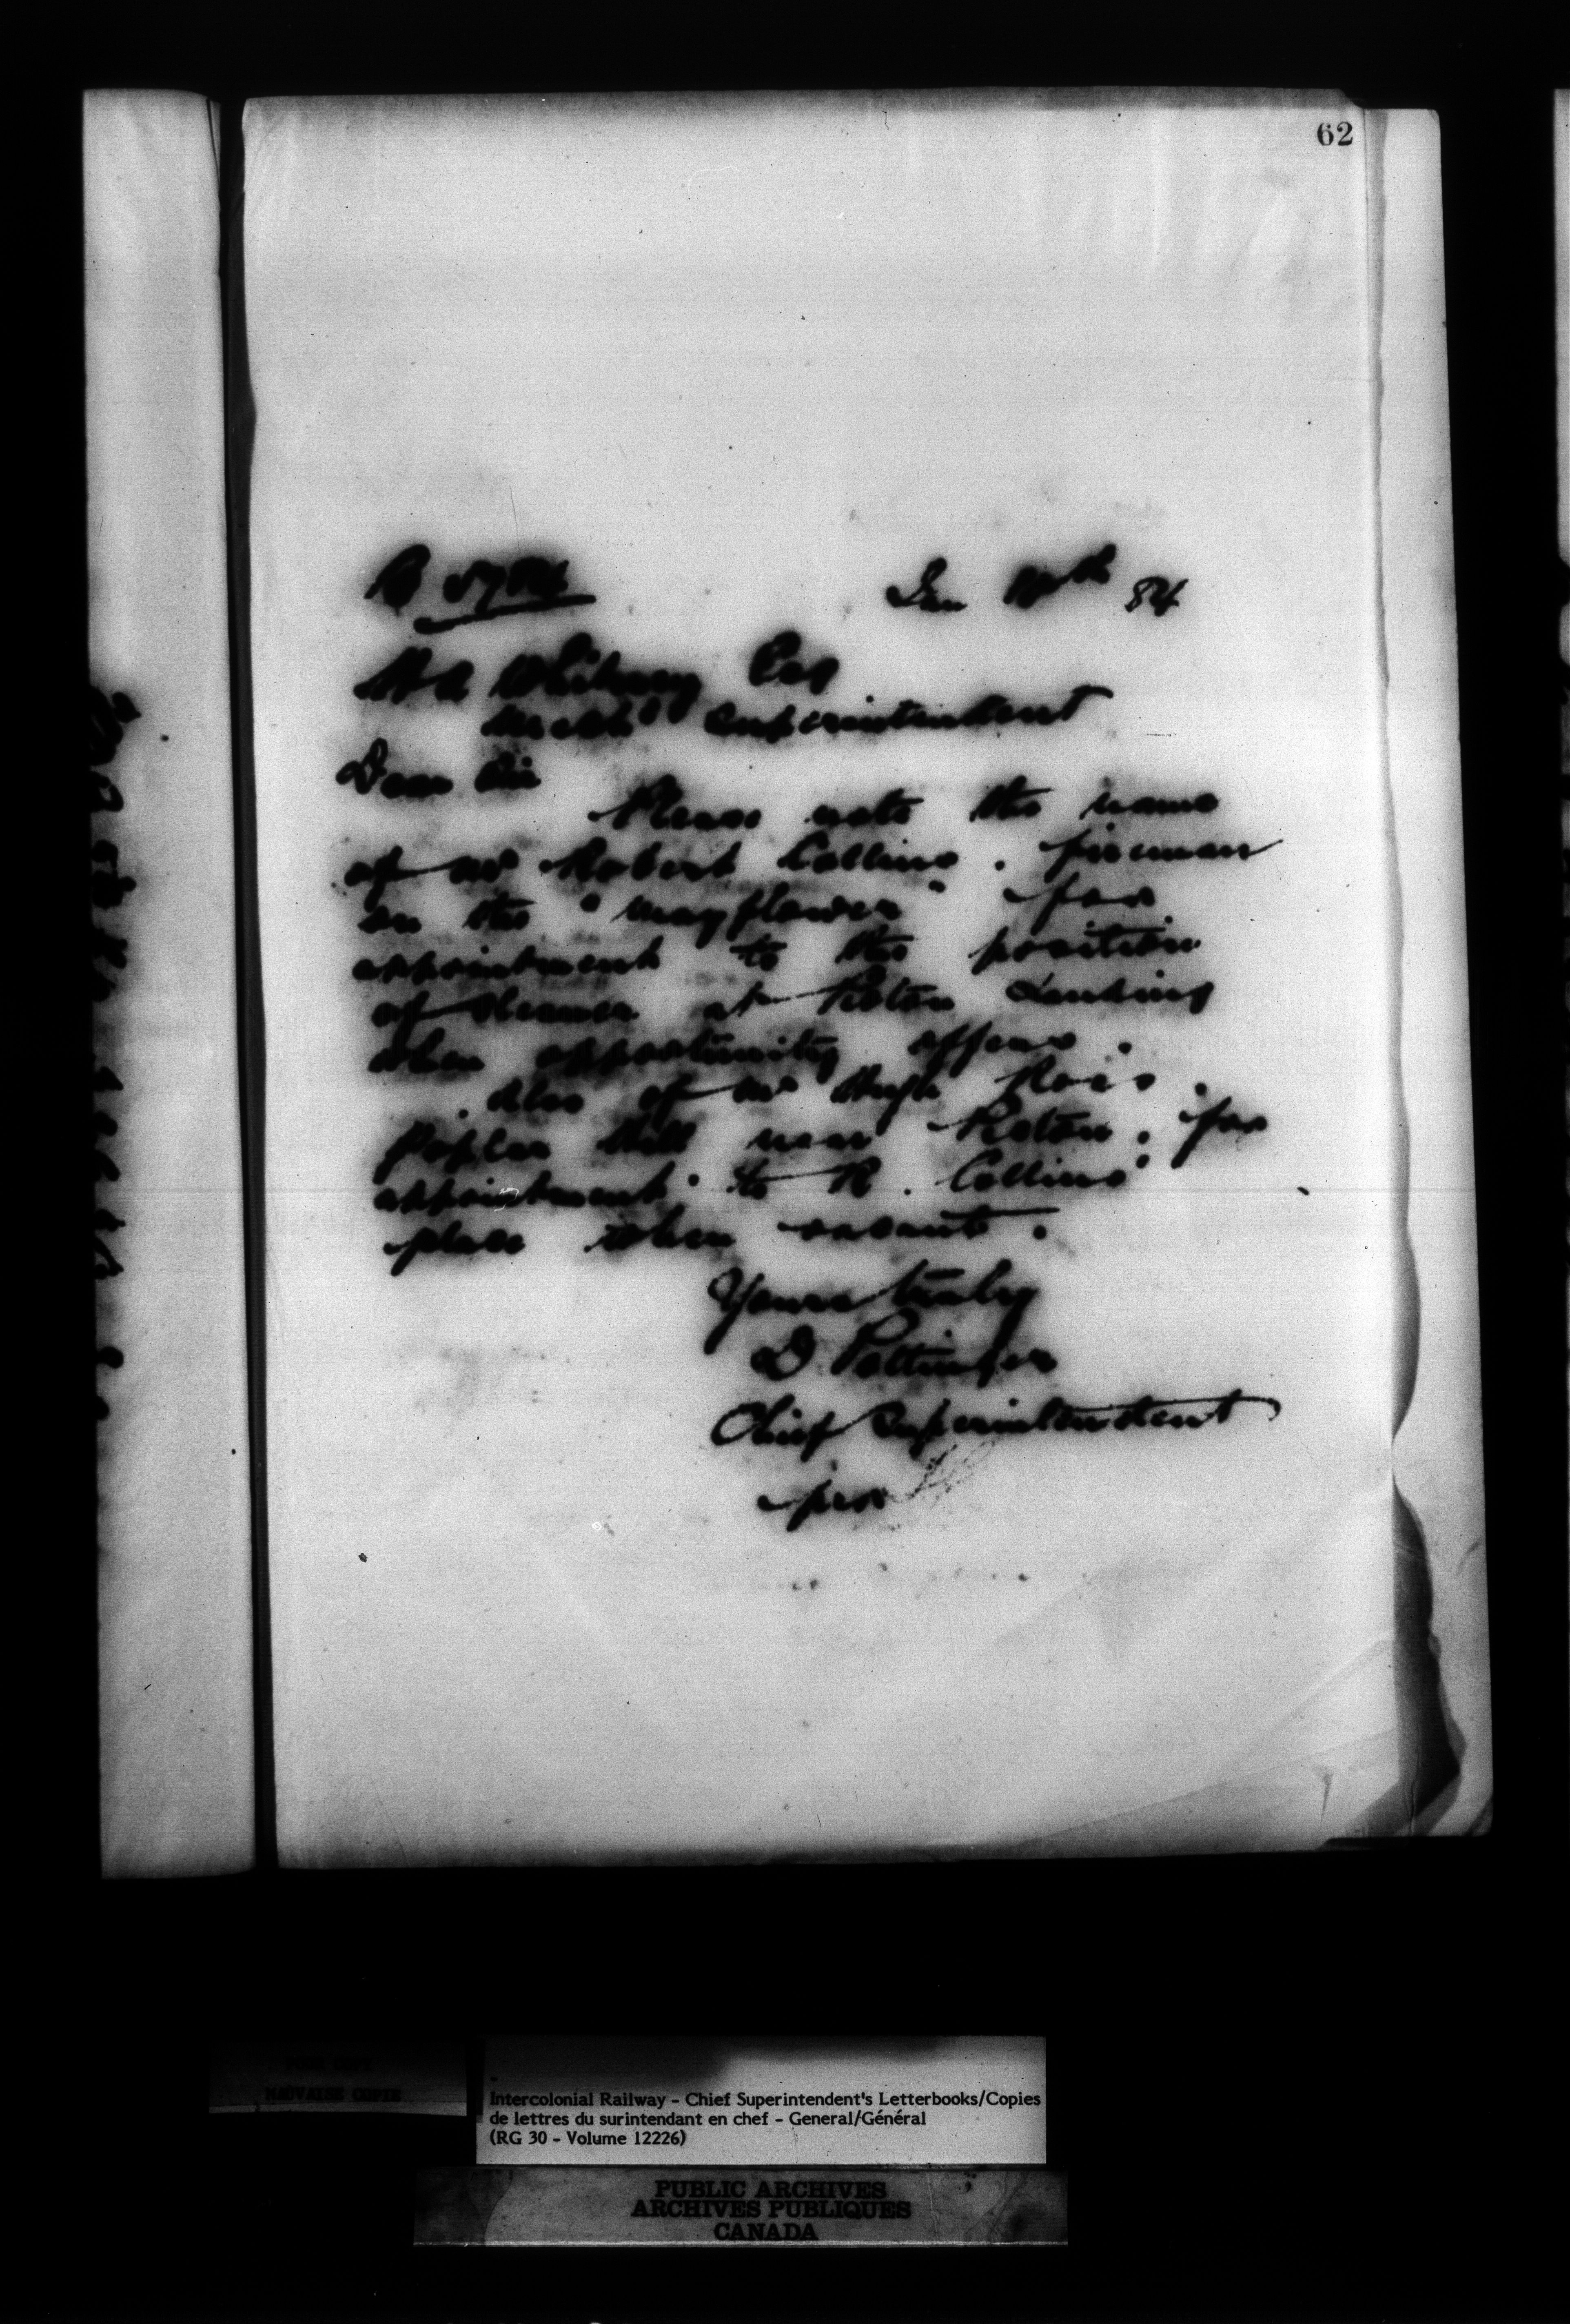 62
Jan 84
H A Whitney Esq
Mechl Superintendent
Dear Sir
Please note the name
of Mr Robert Collins . fireman
on the "Mayflower" for
appointment to the position
of at Pictou Landing
when opportunity offers .
Also of Mr Hugh Ross .
Poplar Hill near Pictou . for
appointment to R . Collins'
place when vacant .
Yours truly
D Pottinger
Chief Superintendent
per
MAUVAISE COPIE
Intercolonial Railway - Chief Superintendent's Letterbooks/Copies
de lettres du surintendant en chef - General/Général
(RG 30 - Volume 12226)
PUBLIC ARCHIVES
ARCHIVES PUBLIQUES
CANADA